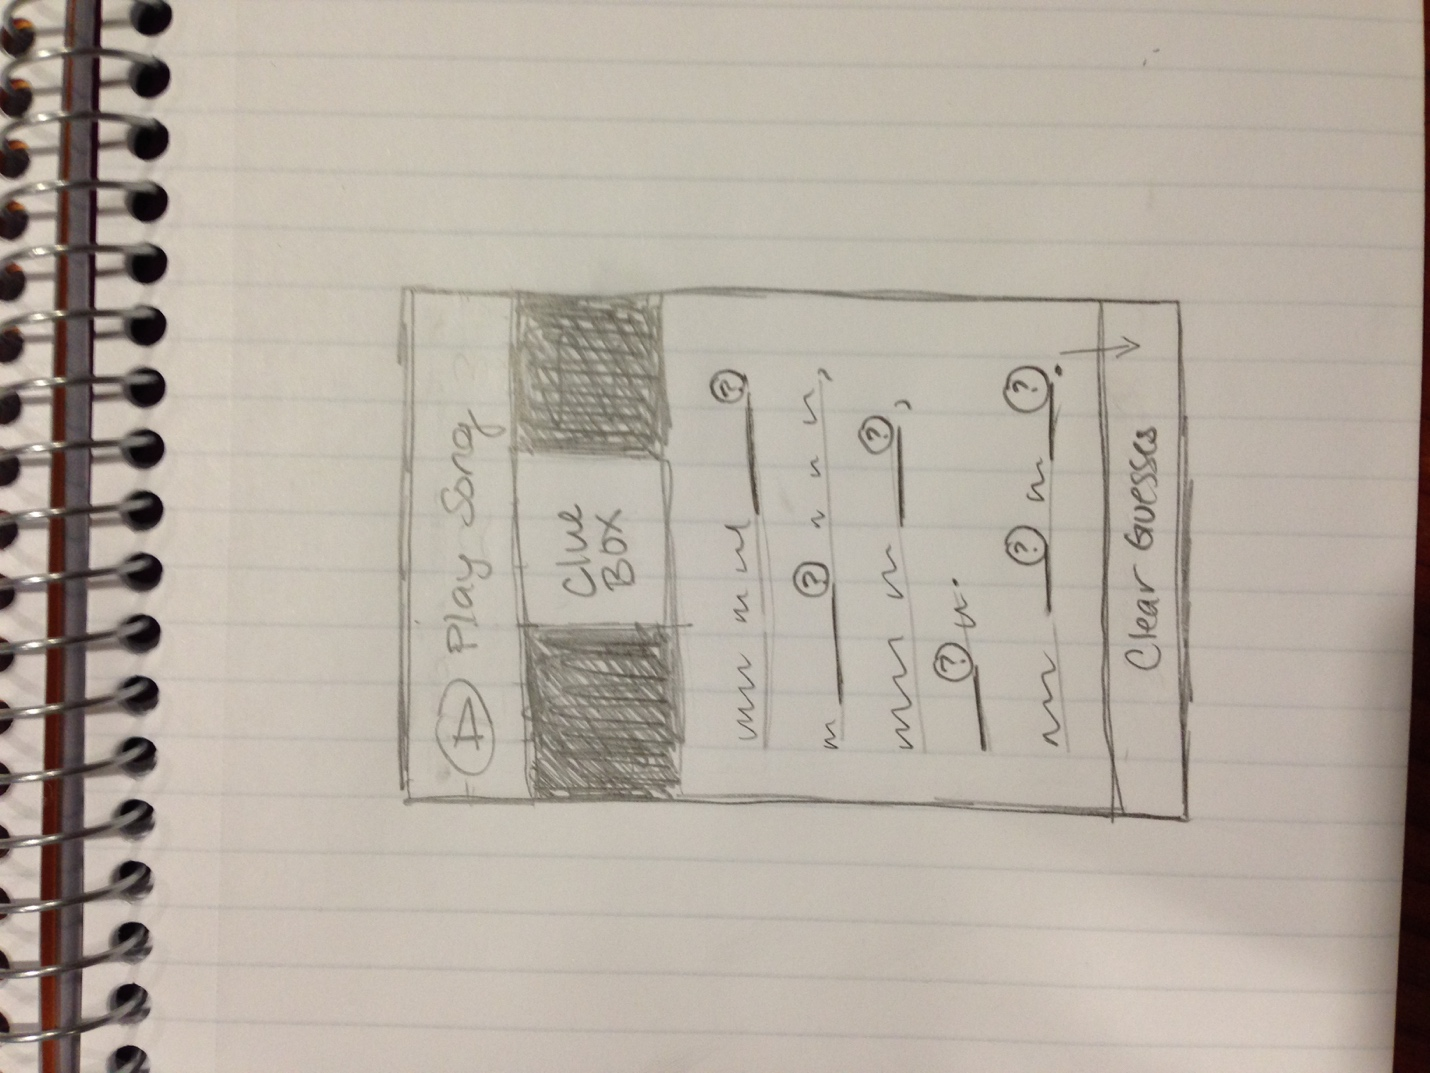 Play Song
Clue
Box
?
?
?
?
? ?
Clear Guesses